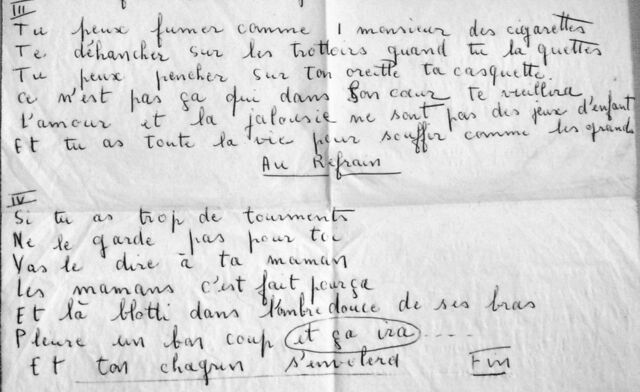 III
Tu peux fumer comme 1 monsieur des cigarettes
Te déhancher sur les trottoirs quand tu la guettes
Tu peux pencher sur ton oreille ta casquette.
Ce n'est pas ça qui dans son cœur te vieillira
L'amour et la jalousie ne sont pas des jeux d'enfant
Et tu as toute la vie pour souffrir comme les grands
Au Refrain
IV
Si tu as trop de tourments
Ne le garde pas pour toi
Vas le dire à ta maman
Les mamans c'est fait pour ça
Et là blotti dans l'ombre douce de ses bras
Pleure un bon coup et ça ira .....
Et ton chagrin s'envolera Fin